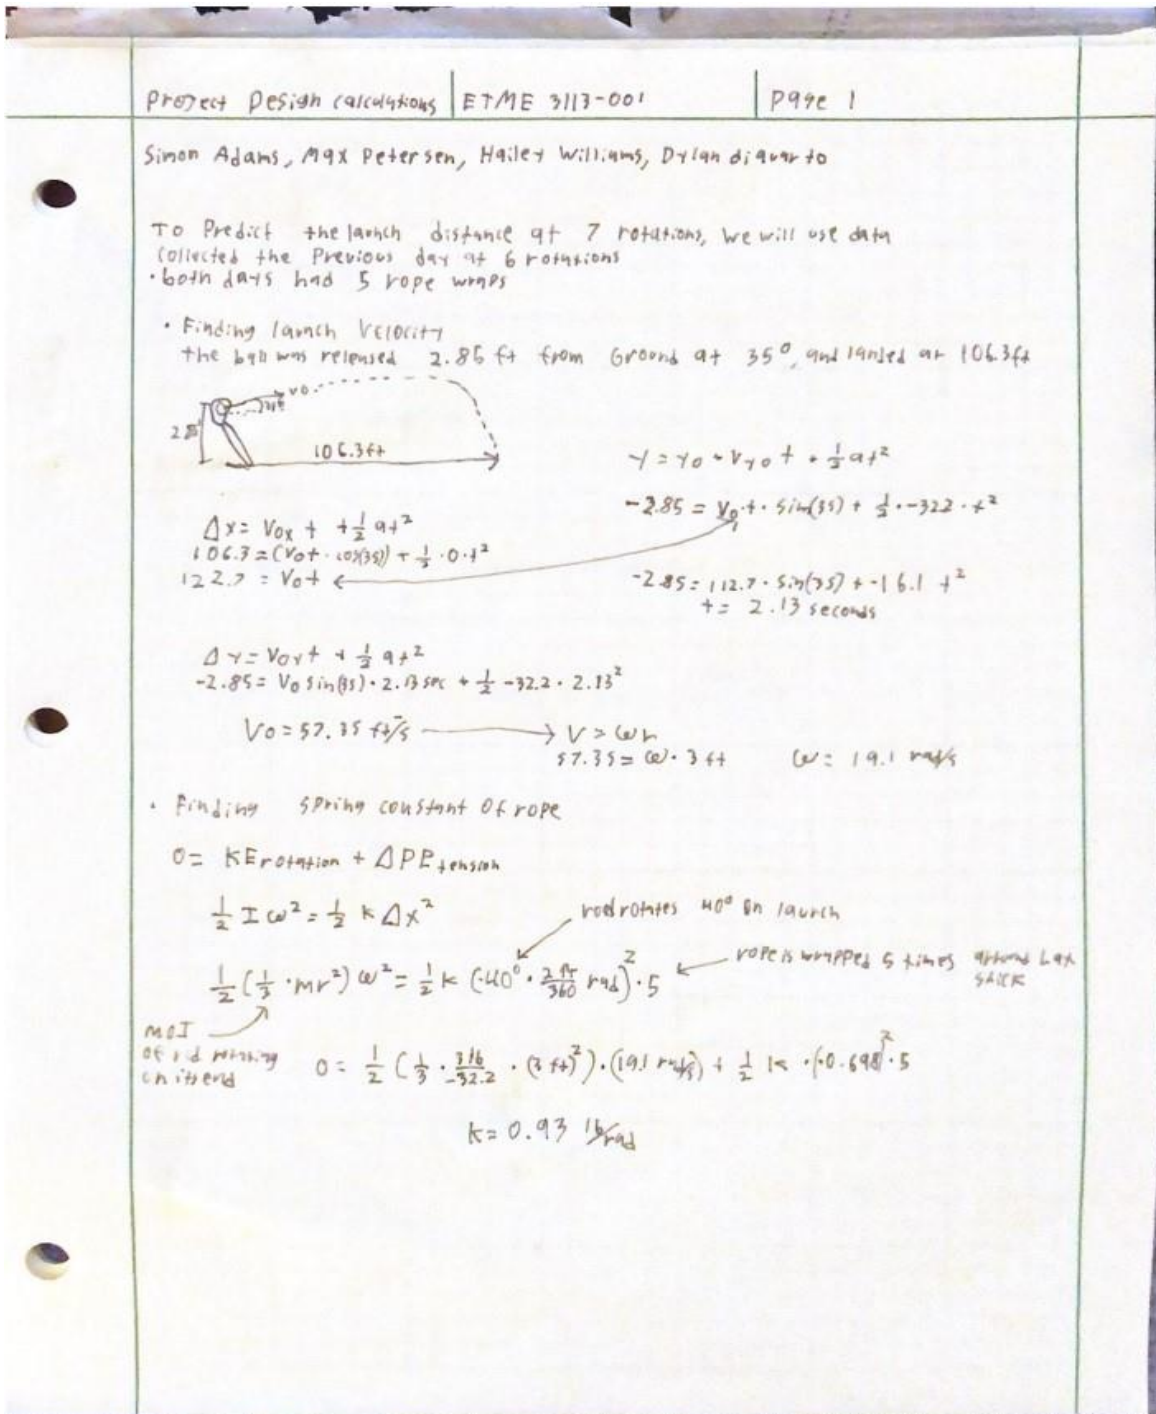 Project Design calculations ETME 3113-001 Page 1
Simon Adams, Max Petersen, Hailey Williams, Dylan diquarto
To Predict the launch distance at 7 rotations, we will use data
collected the Previous day at 6 rotations
• both days had 5 rope wraps
• Finding launch Velocity
the ball was released 2.85 ft from Ground at 35°, and landed at 106.3ft
vo
106.3ft
y = yo + Vyo t + ½at²
-2.85 = Vo·t·sin(35) + ½·-32.2·t²
Δx = Vox t + ½at²
106.3 = (Vot·cos(35)) + ½·0·t²
122.7 = Vot
-2.85 = 112.7·sin(35) + -16.1 t²
t = 2.13 seconds
Δy = Voyt + ½at²
-2.85 = Vo sin(35)·2.13 sec + ½ -32.2·2.13²
Vo = 57.35 ft/s
V = ωr
57.35 = ω·3 ft
ω = 19.1 rad/s
• Finding spring constant of rope
0 = KErotation + ΔPEtension
½Iω² = ½kΔx²
rod rotates 40° on launch
½(⅓·mr²)ω² = ½k(-40°·2π/360 rad)²·5
rope is wrapped 5 times around Lax
stick
MOI
of rod rotating
on its end
0 = ½(⅓·3lb/-32.2·(3 ft)²)·(19.1 rad/s) + ½k·(-0.698)²·5
k = 0.93 lb/rad